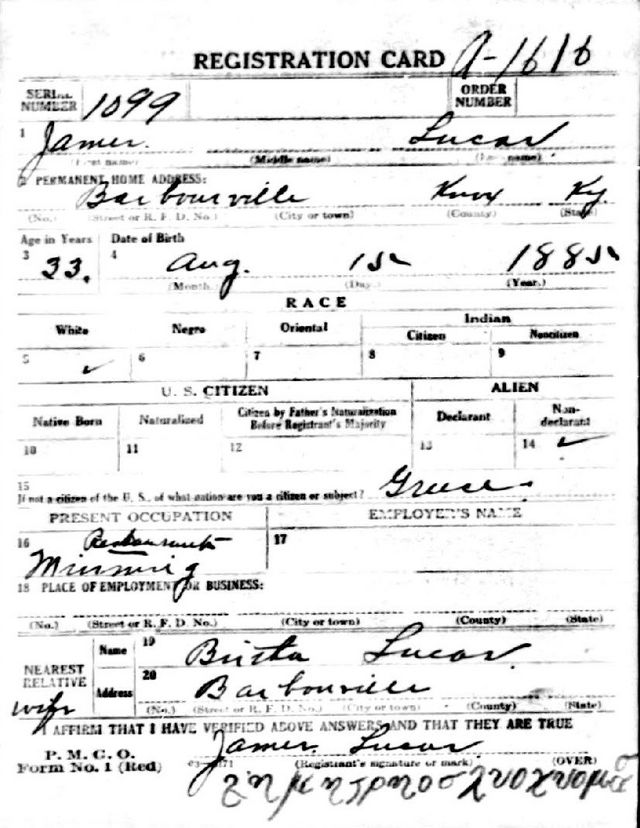 REGISTRATION CARD A-1616
SERIAL NUMBER 1099 ORDER NUMBER
1 James Lucas
(First name) (Middle name) (Last name)
2 PERMANENT HOME ADDRESS:
Barbourville Knox Ky
(No.) (Street or R. F. D. No.) (City or town) (County) (State)
Age in Years Date of Birth
3 33. 4 Aug. 15 1885
(Month.) (Day.) (Year.)
RACE
White Negro Oriental Indian
Citizen Noncitizen
5 ✓ 6 7 8 9
U. S. CITIZEN ALIEN
Native Born Naturalized Citizen by Father's Naturalization Before Registrant's Majority Declarant Non-declarant
10 11 12 13 14 ✓
15
If not a citizen of the U. S., of what nation are you a citizen or subject? Greece.
PRESENT OCCUPATION EMPLOYER'S NAME
16 Restaurant 17
Minning
18 PLACE OF EMPLOYMENT OR BUSINESS:
(No.) (Street or R. F. D. No.) (City or town) (County) (State)
NEAREST RELATIVE Name 19 Lucas
wife Address 20 Barbourville
(No.) (Street or R. F. D. No.) (City or town) (County) (State)
I AFFIRM THAT I HAVE VERIFIED ABOVE ANSWERS AND THAT THEY ARE TRUE
P. M. G. O.
Form No. 1 (Red) James Lucas
(Registrant's signature or mark) (OVER)